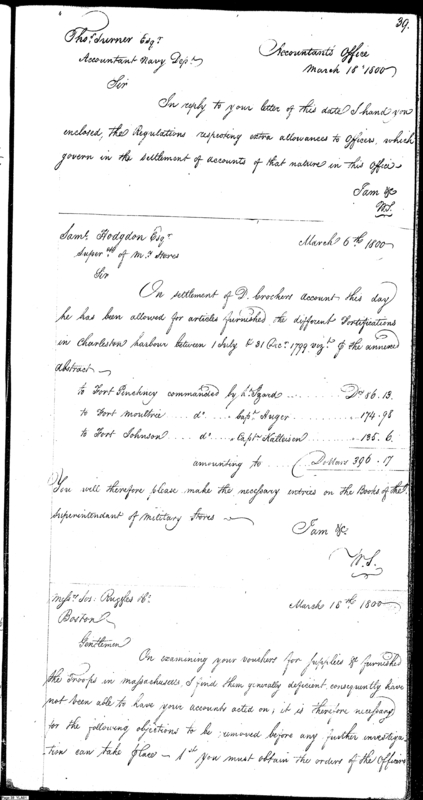 39.
Thos. Turner Esqr.
Accountant Navy Dept.
Accountants Office
March 18th 1800
Sir
In reply to your letter of this date I hand you
enclosed, the Regulations respecting extra allowances to Officers, which
govern in the settlement of accounts of that nature in this Office
I am &c
W.S.
Saml. Hodgdon Esqr.
March 6th 1800
Super of My. Stores
Sir
On settlement of D. brochers account this day
he has been allowed for articles furnished the different Fortifications
in Charleston harbour between 1 July & 31 Decr. 1799 vizt. the annexed
abstract
to Fort Pinchney commanded by Lt. Izard Drs 86.13.
to Fort Moultrie do. Capt. Huger 174.98
to Fort Johnson do. Capt. Kalteisen 135.6
amounting to Dollars 396.17
You will therefore please make the necessary entries on the Books of the
Superintendant of Military Stores
I am &c.
W.S.
Messrs. Jos. Ruggles &c.
March 18th 1800
Boston
Gentlemen
On examining your vouchers for supplies &c furnished
the Troops in Massachusetts I find them generally deficient, consequently have
not been able to have your accounts acted on; it is therefore necessary
for the following objections to be removed before any further investiga-
tion can take place - 1st You must obtain the orders of the Officers